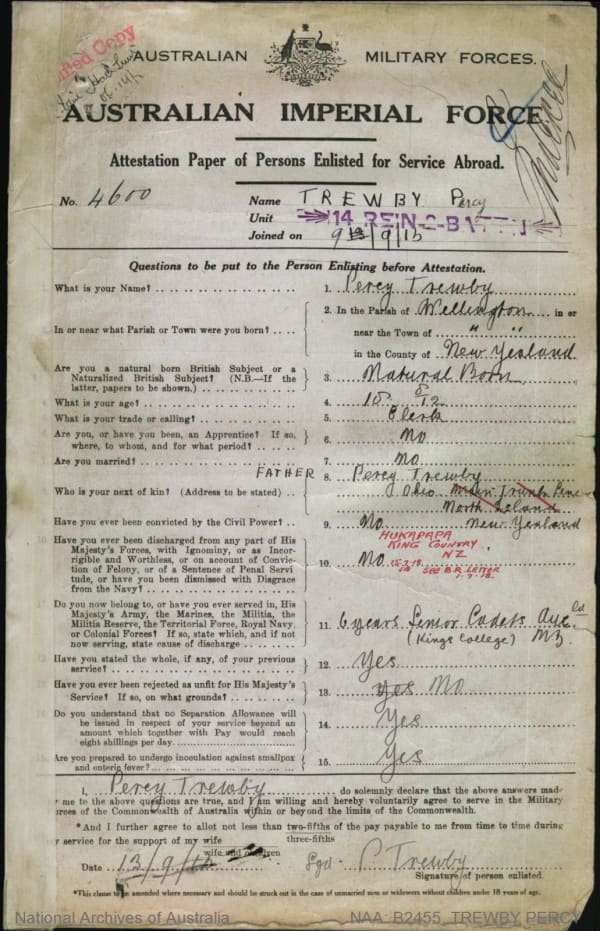 Certified Copy
AUSTRALIAN MILITARY FORCES.
AUSTRALIAN IMPERIAL FORCE
Attestation Paper of Persons Enlisted for Service Abroad.
No. 4600 Name TREWBY Percy
Unit 14 REIN-2-BATTN
Joined on 9/9/15
Questions to be put to the Person Enlisting before Attestation.
What is your Name? 1. Percy Trewby
2. In the Parish of Wellington in or
In or near what Parish or Town were you born? near the Town of " "
in the County of New Zealand
Are you a natural born British Subject or a
Naturalized British Subject? (N.B.—If the 3. Natural Born
latter, papers to be shown.)
What is your age? 4. 18 8/12
What is your trade or calling? 5. Clerk
Are you, or have you been, an Apprentice? If so, 6. No
where, to whom, and for what period?
Are you married? 7. No
FATHER 8. Percy Trewby
Who is your next of kin? (Address to be stated) Ohio Main Trunk Line
North Island
Have you ever been convicted by the Civil Power? 9. No New Zealand
HUKAPAPA
KING COUNTRY
NZ
Have you ever been discharged from any part of His
Majesty's Forces, with Ignominy, or as Incor-
rigible and Worthless, or on account of Convic- 10. No SEE B.R. LETTER
tion of Felony, or of a Sentence of Penal Servi-
tude, or have you been Dismissed with Disgrace
from the Navy?
Do you now belong to, or have you ever served in, His
Majesty's Army, the Marines, the Militia, the
Militia Reserve, the Territorial Force, Royal Navy, 11. 6 years Senior Cadets Auckld
or Colonial Forces? If so, state which, and if not (Kings College) NZ
now serving, state cause of discharge
Have you stated the whole, if any, of your previous 12. Yes
service?
Have you ever been rejected as unfit for His Majesty's 13. yes No
Service? If so, on what grounds?
Do you understand that no Separation Allowance will
be issued in respect of your service beyond an 14. Yes
amount which together with Pay would reach
eight shillings per day.
Are you prepared to undergo inoculation against smallpox
and enteric fever? 15. Yes
I, Percy Trewby do solemnly declare that the above answers made
by me to the above questions are true, and I am willing and hereby voluntarily agree to serve in the Military
Forces of the Commonwealth of Australia within or beyond the limits of the Commonwealth.
*And I further agree to allot not less than two-fifths of the pay payable to me from time to time during
three-fifths
my service for the support of my wife
wife and children
Date 13/9/15 Sgd. P Trewby
Signature of person enlisted.
*This clause to be amended where necessary and should be struck out in the case of unmarried men or widowers without children under 18 years of age.
National Archives of Australia NAA: B2455, TREWBY PERCY